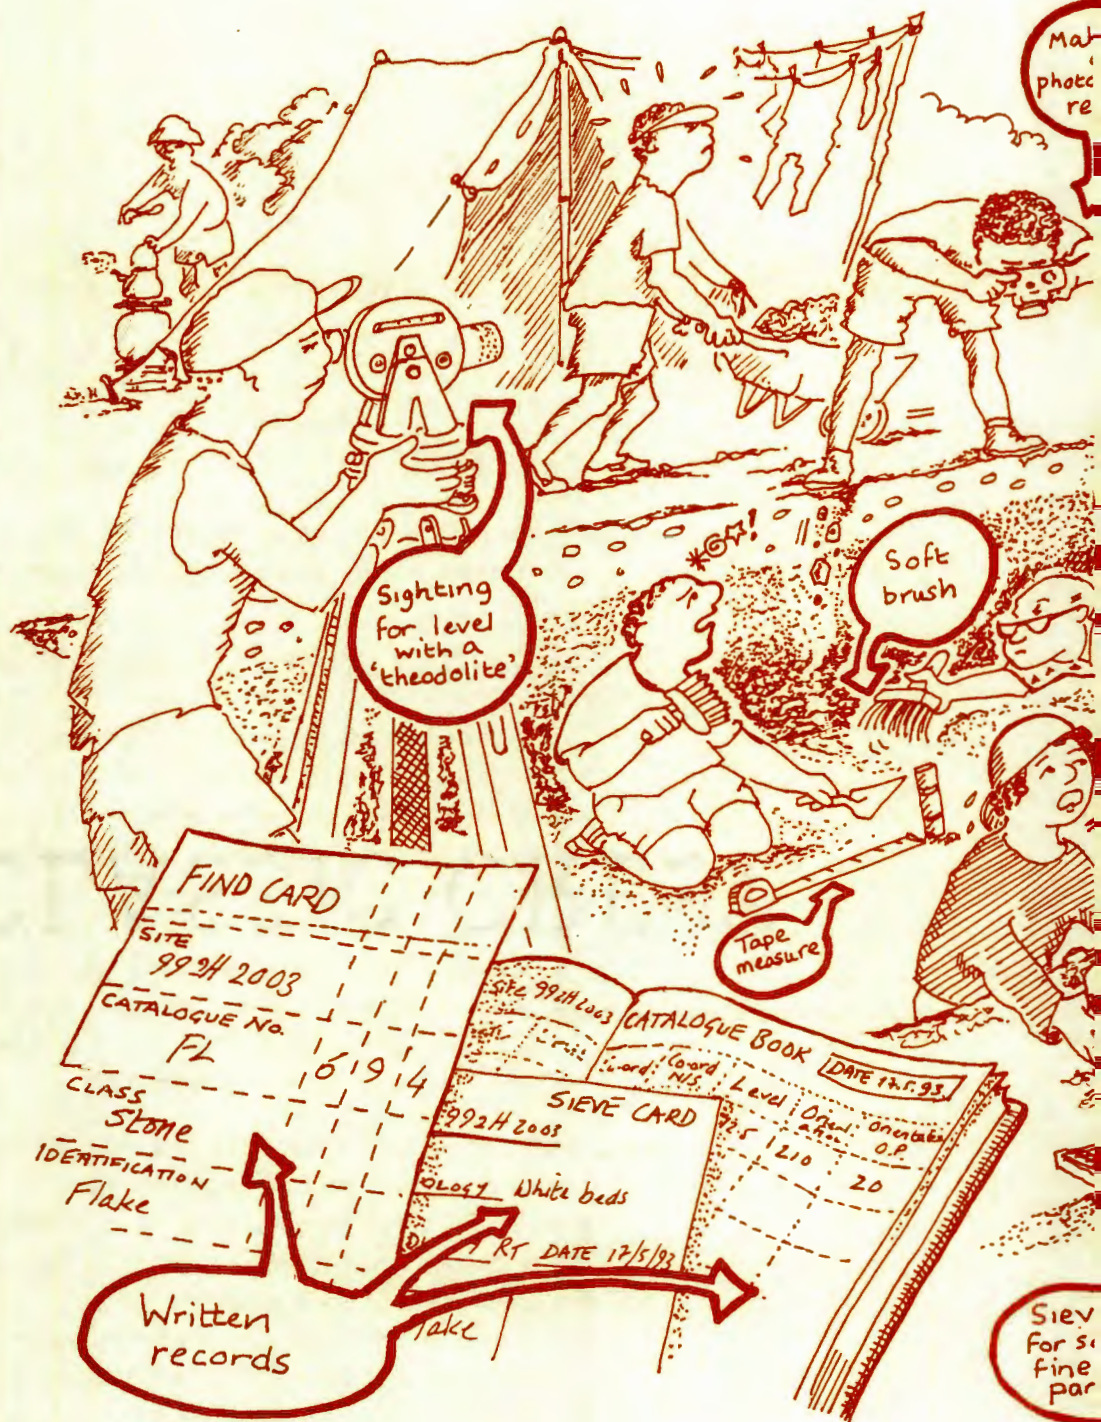 Mak
photo
re
*@☆!
Soft
brush
Sighting
for level
with a
'theodolite'
Tape
measure
FIND CARD
SITE
992H 2003
CATALOGUE No.
FL 6 9 4
CLASS
Stone
IDENTIFICATION
Flake
SITE 992H 2003
CATALOGUE BOOK
DATE 17.5.93
Co-ord
N/S
Level
Orient
ation
Orientation
O.P.
210
20
SIEVE CARD
992H 2003
OLOGY White beds
RT DATE 17/5/93
Written
records
Siev
for s
fine
par